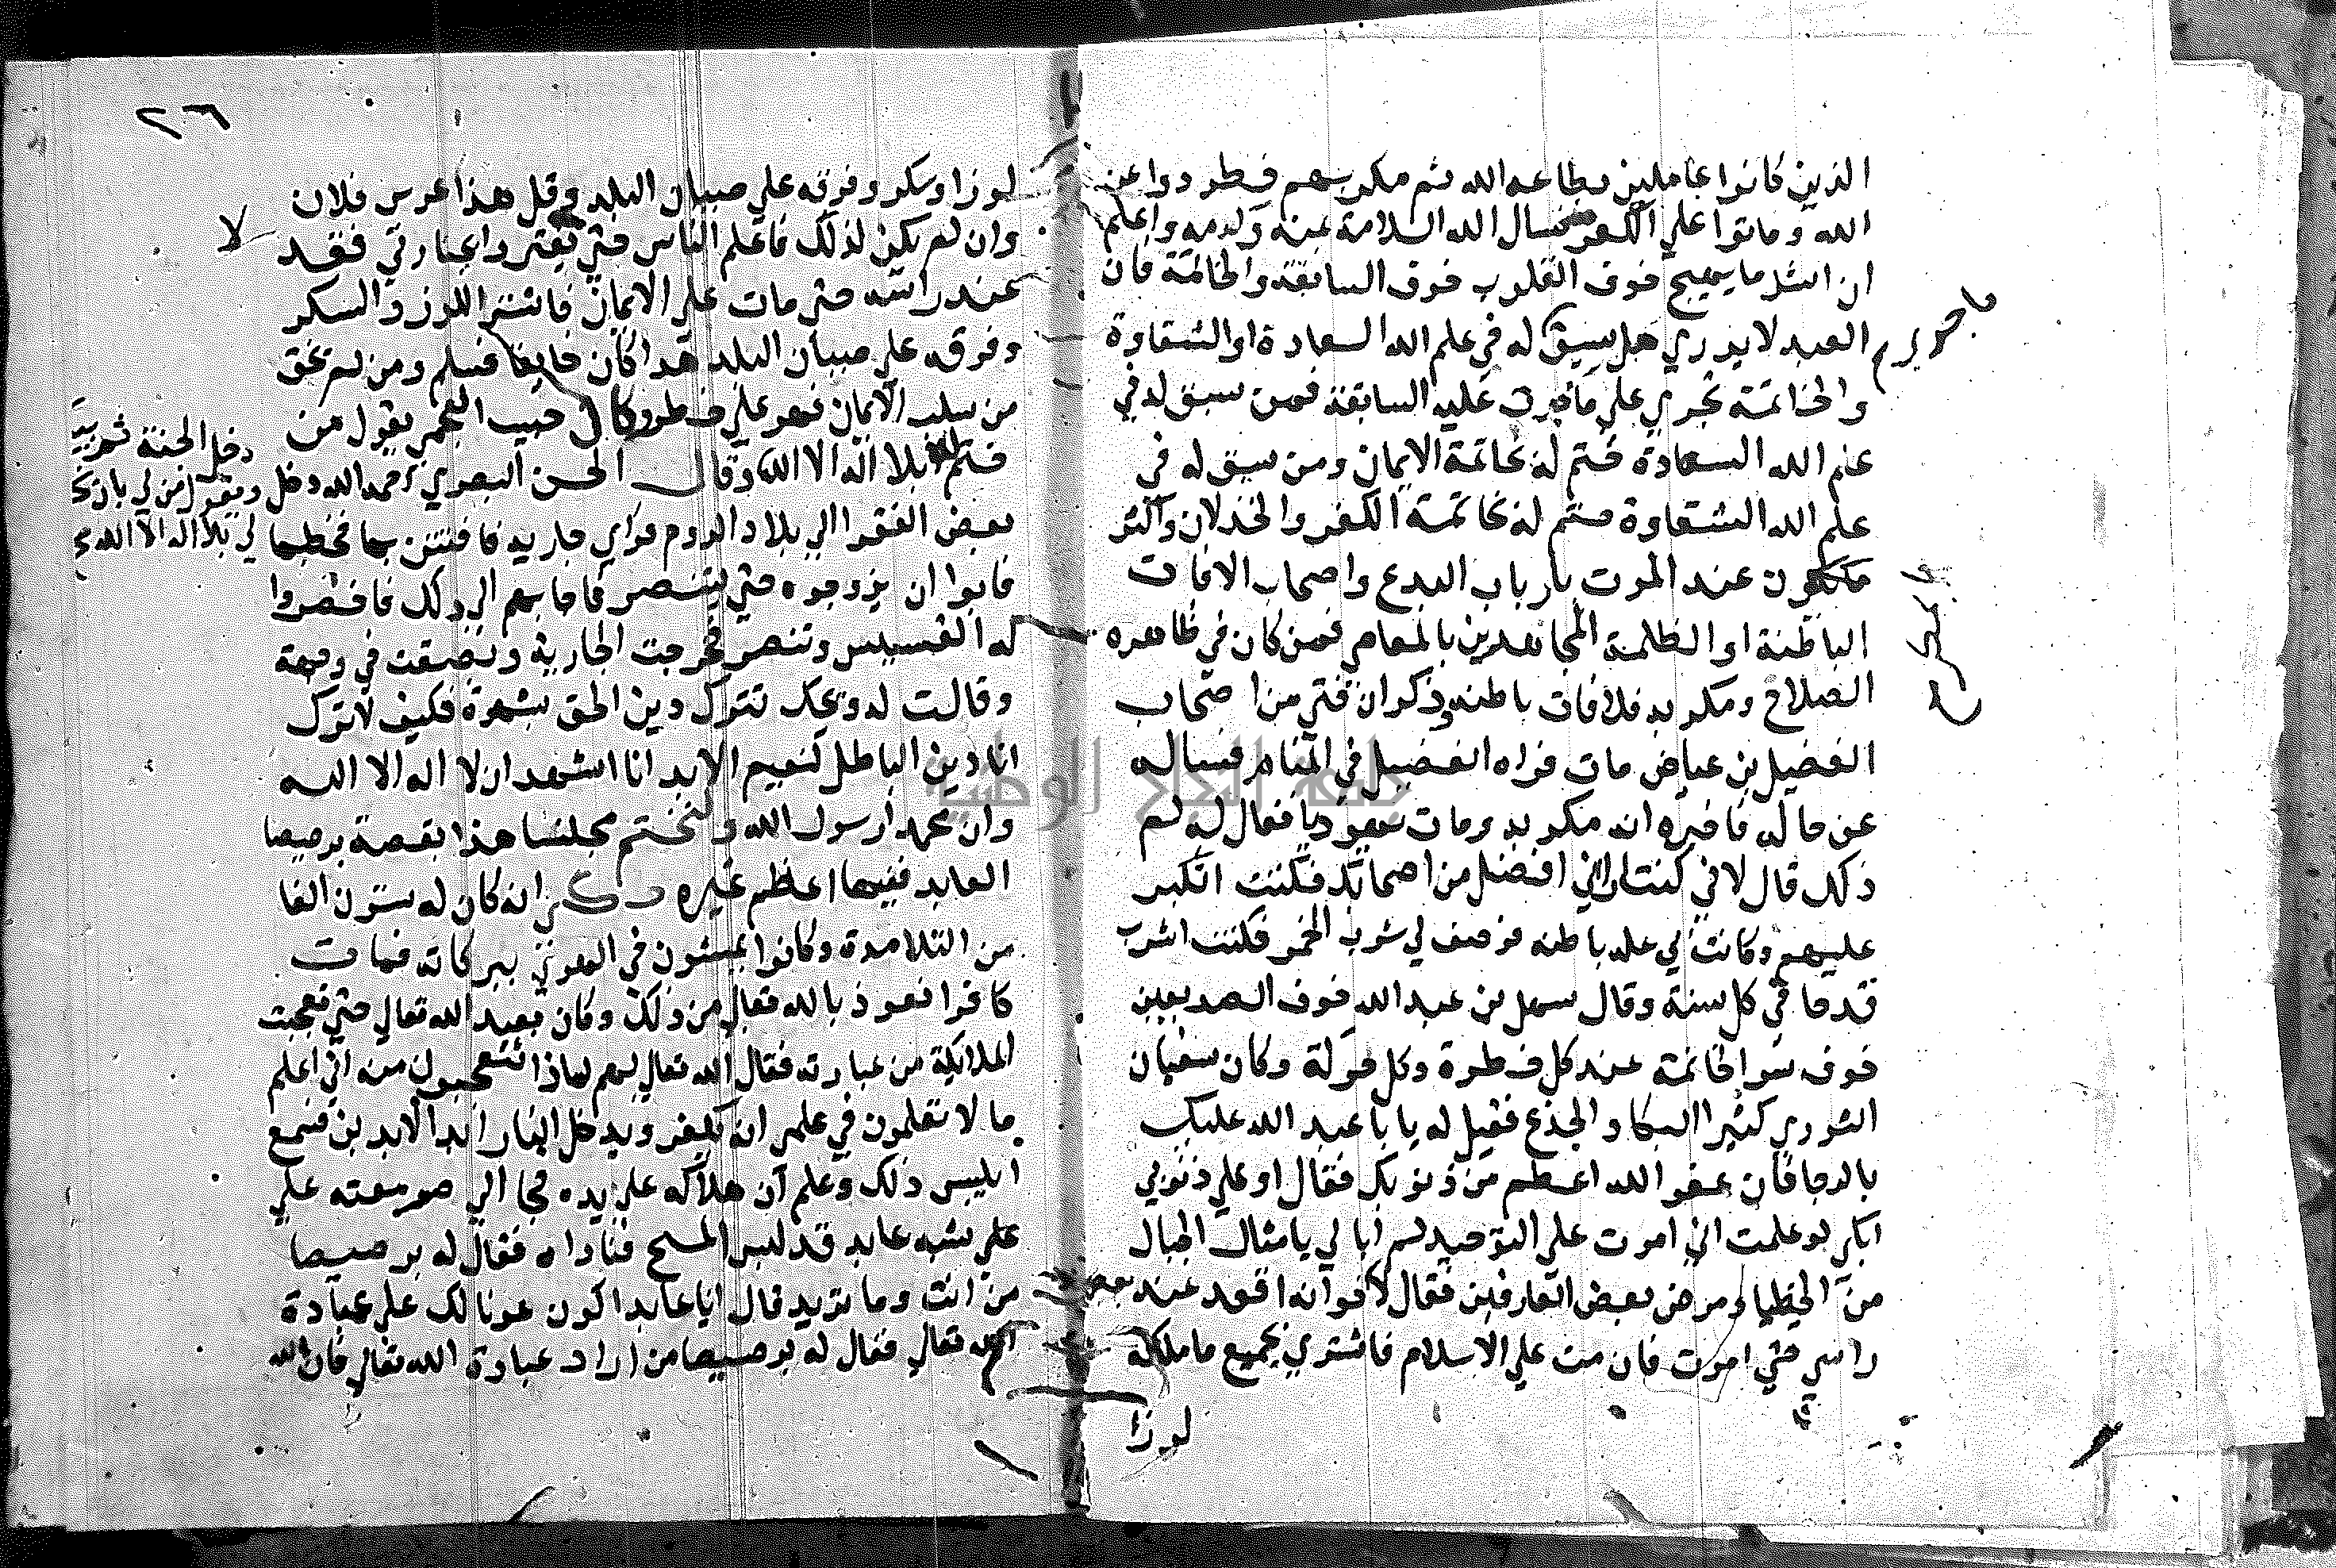 الذين كانوا عاملين بطاعه الله ثم مكر بهم فطردوا عن
الله وماتوا علي الكفر فنسال الله السلامة بمنه وكرمه واعلم
ان اشد ما يهيج خوف القلوب خوف السابقة والخاتمة فان
العبد لا يدري هل سبق له في علم الله السعادة او الشقاوة
والخاتمة تجري علي ما جرت عليه السابقة فمن سبق له في
علم الله السعادة ختم له بخاتمة الايمان ومن سبق له في
علم الله الشقاوة ختم له بخاتمة الكفر والخذلان واكثر
ما يكون عند الموت بارباب البدع واصحاب الافات
الباطنة او الظلمة المجاهدين بالمعاصي فمن كان في ظاهره
الصلاح ومكر به فلافات باطنه وذكر ان فتي من اصحاب
الفضيل بن عياض مات فراه الفضيل في المنام فساله
عن حاله فاخبره انه مكر به ومات يهوديا فقال له لم
ذلك قال لاني كنت اراني افضل من اصحابك فكنت اتكبر
عليهم وكانت لي عله باطنه فوصف لي شرب الخمر فكنت اشرب
قدحا في كل سنة وقال سهل بن عبد الله خوف الصديقين
خوف سو الخاتمة عند كل خطرة وكل حركة وكان سفيان
الثوري كثير البكا والجذع فقيل له يابا عبد الله عليك
بالرجا فان عفو الله اعظم من ذنوبك فقال او علي ذنوبي
ابكي لو علمت اني اموت علي التوحيد لم ابالي بامثال الجبال
من الخطايا ومرض بعض العارفين فقال لاخوانه اقعد عند
راسي حتي اموت فان مت علي الاسلام فاشتري بجميع ما املكه
لوزا
٢٦
لوزا وسكر وفرقه علي صبيان البلد وقل هذا عرس فلان
وان لم يكن لذلك فاعلم الناس حتي يغتروا بجنازتي فقعد
عند راسه حتي مات علي الايمان فاشتر اللوز والسكر
وفرقه علي صبيان البلد هذا كان خايفا فسلم ومن لم يخف
من سلب الايمان فهو علي خطر وكان حبيب العجمي يقول من
ختم له بلا اله الا الله دخل الجنة ثم
وقال الحسن البصري رحمه الله دخل
ويقول من لي بان
لي بلا اله الا الله
بعض الفقرا الي بلاد الروم فراي جاريه فافتتن بها فخطبها
فابوا ان يزوجوه حتي يتنصر فاجابهم الي ذلك فاحضروا
له القسيس وتنصر فخرجت الجارية وبصقت في وجهه
وقالت له ويحك تترك دين الحق بشهوة فكيف لا اترك
انا دين الباطل لنعيم الابد انا اشهد ان لا اله الا الله
وان محمدا رسول الله ولنختم مجلسنا هذا بقصة برصيصا
العابد ففيها اعظم عبره ذكر انه كان له ستون الفا
من التلامدة وكانوا يمشون في الهوي ببركاته فمات
كافرا نعوذ بالله تعالي من ذلك وكان يعبد الله تعالي حتي تعجبت
الملائكة من عبادته فقال الله تعالي لهم لماذا تتعجبون منه اني اعلم
ما لا تعلمون في علمي انه يكفر ويدخل النار ابد الابدين فسمع
ابليس ذلك وعلم ان هلاكه علي يده فجا الي صومعته علي
علي شبه عابد قد لبس المسح فناداه فقال له برصيصا
من انت وما تريد قال انا عابد اكون عونا لك علي عبادة
الله تعالي فقال له برصيصا من اراد عبادة الله تعالي فان الله
جامعة النجاح الوطنية